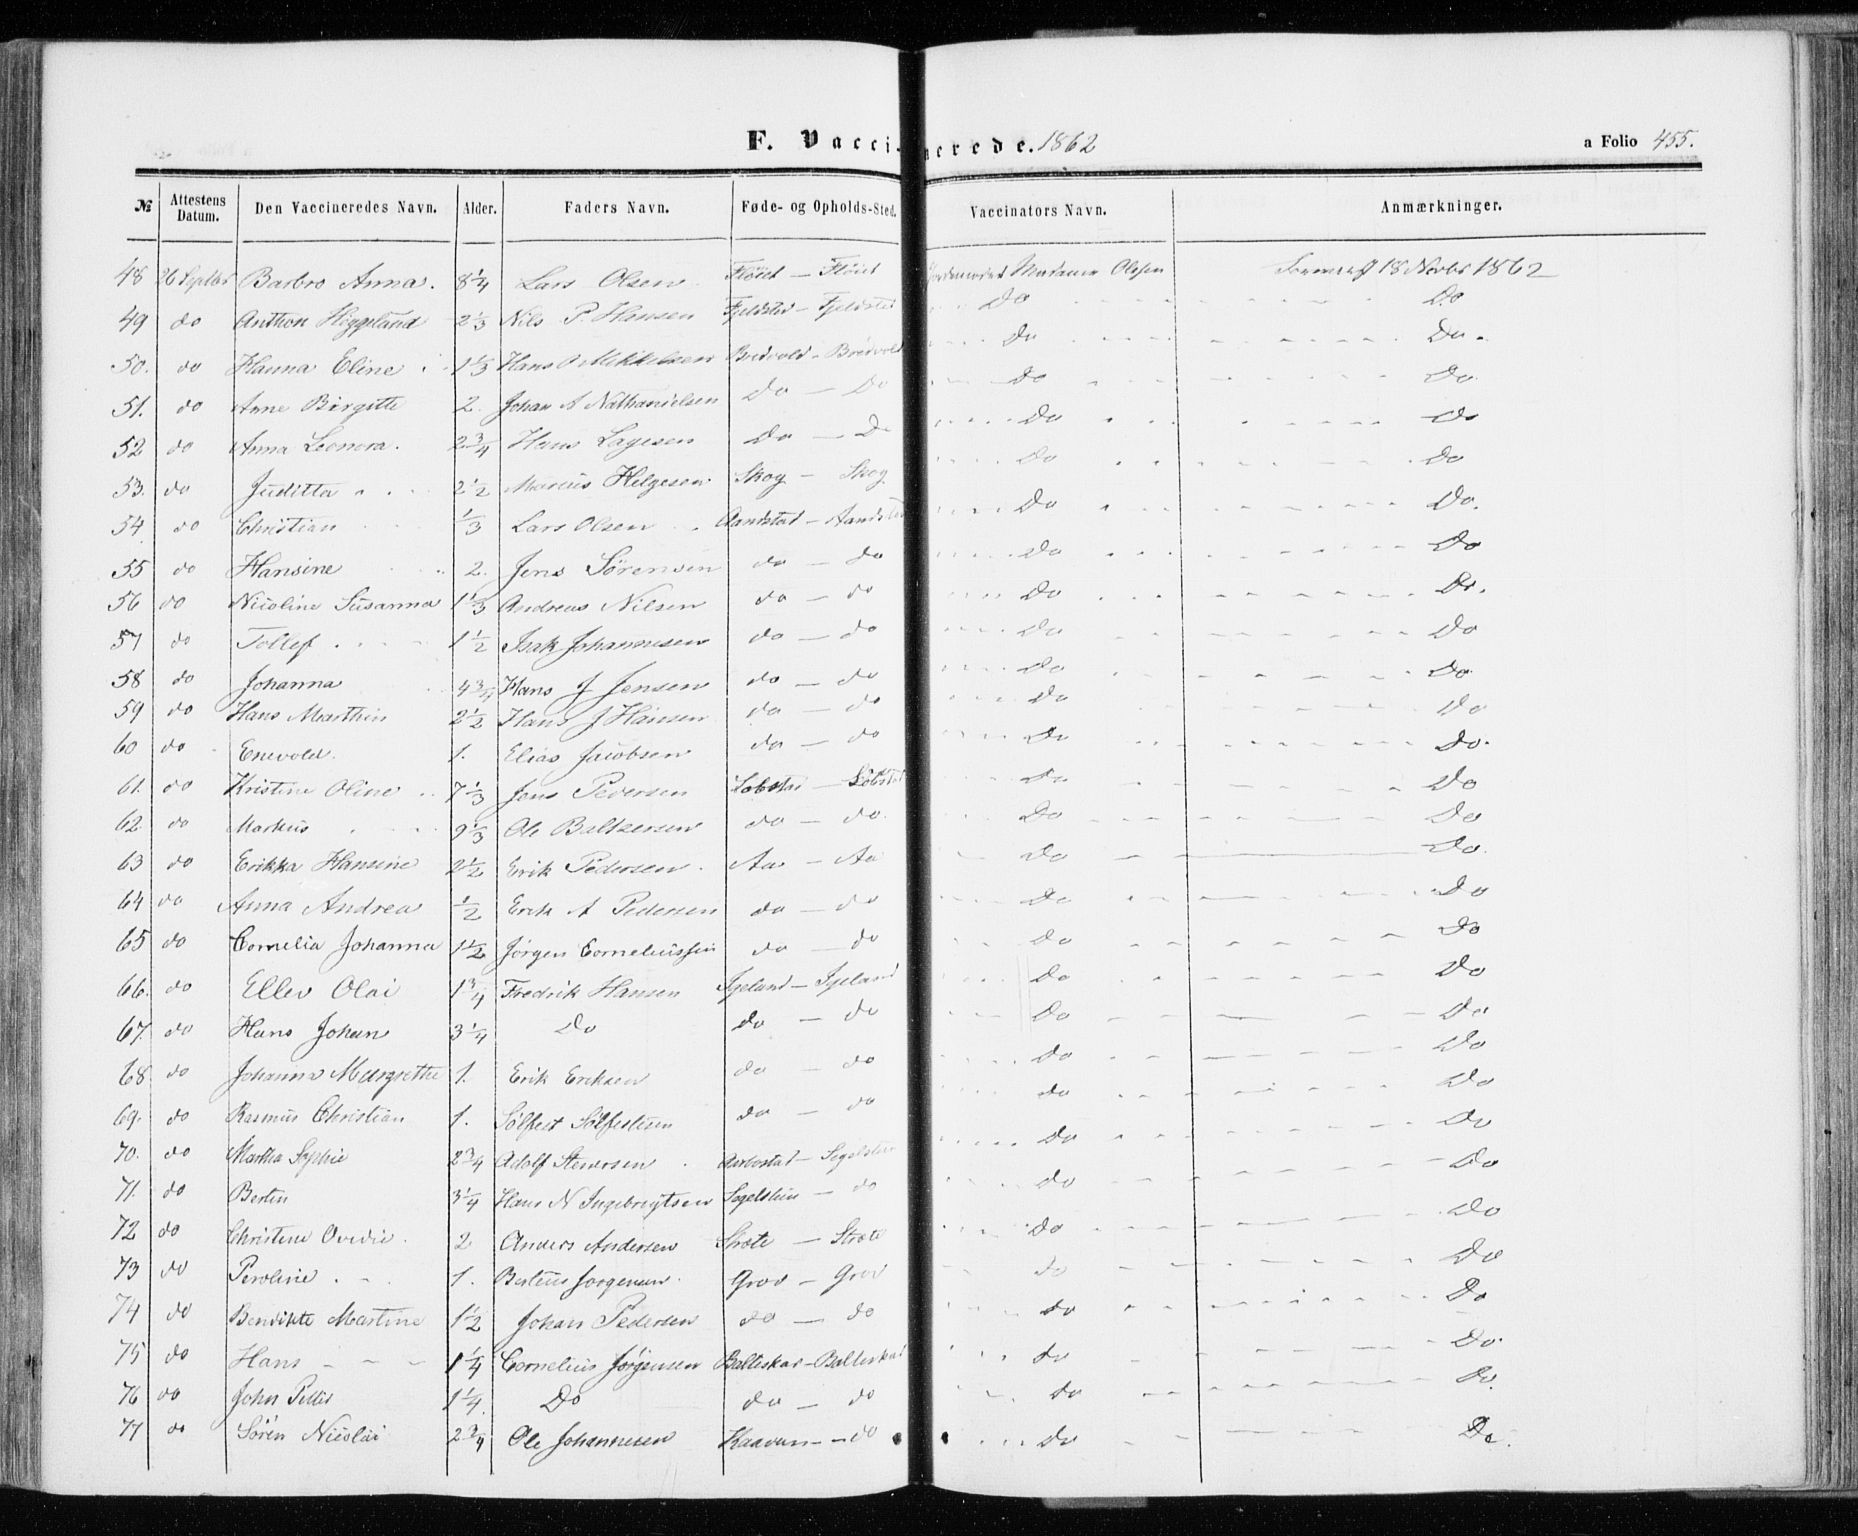 F. Vaccinerede. 1862 a Folio 455.
№ Attestens Datum. Den Vaccineredes Navn. Alder. Faders Navn. Føde- og Opholds-Sted. Vaccinators Navn. Anmærkninger.
48 26 Septbr Barbro Anna. 8 1/4 Lars Olsen Fløiet — Fløiet Madame Olsen 18 Novbr 1862
49 do Anthon Høgeland 2 1/3 Nils P. Hansen Fjeldsted — Fjeldsted Do Do
50. do Hanna Eline 1 1/3 Hans O Mikkelsen Bredvold — Bredvold Do Do.
51. do Anne Birgitte 2. Johan A Nathanielsen Do — Do Do Do.
52 do Anna Leonora. 2 3/4 Hans Lagesen Do — Do Do Do
53. do Juditta 2 1/2 Marcus Helgesen Skog — Skog Do Do
54. do Christian 1/3 Lars Olsen Aandstad — Aandstad Do Do.
55 do Hansine 2. Jens Sørensen do — do Do Do
56 do Nicoline Susanna 1 1/3 Andreas Nilsen do — do Do Do.
57 do Tollef 1 1/2 Isak Johannesen do — do Do Do
58 do Johanna 4 3/4 Hans J Jensen do — do Do Do.
59 do Hans Marthin 2 1/2 Hans J Hansen do — do Do Do
60 do Enevold. 1. Elias Jacobsen do — do Do Do.
61. do Kristine Oline 7 1/3 Jens Pedersen Løbstad — Løbstad Do Do
62. do Markus 9 1/3 Ole Baltzersen do — do. Do Do
63 do Erikka Hansine 2 1/2 Erik Pedersen. Aa — Aa Do Do.
64 do Anna Andrea 1/2 Erik A Pedersen do — do Do Do
65 do Cornelia Johanna 1 1/2 Jørgen Corneliussen do — do Do Do
66. do Ellev Olai 1 3/4 Fredrik Hansen Igeland — Igeland Do Do
67. do Hans Johan 3 1/4 Do do — do Do Do
68 do Johanna Margrethe 1. Erik Eriksen do — do Do Do
69. do Rasmus Christian 1. Sølfest Sølfestsen do — do do Do
70. do Martha Sophie 2 3/4 Adolf Steversen Aarbostad — Segelsten Do Do
71. do Bertin 3 1/4 Hans N Ingebrigtsen Segelsten — do Do Do
72 do Christine Ovedie. 2 Anders Andersen Strøte — Strøte do Do
73 do Peroline 1. Berteus Jørgensen. Grov — Grov do Do
74 do Bendikte Martine 1 1/2 Johan Pedersen do — do do Do
75 do Hans 1 1/4 Cornelius Jørgensen Balteskar — Balteskar do Do
76 do John Petter 1 1/4. Do do — do do Do.
77 do Søren Nicolai 2 3/4 Ole Johannesen — do do Do.